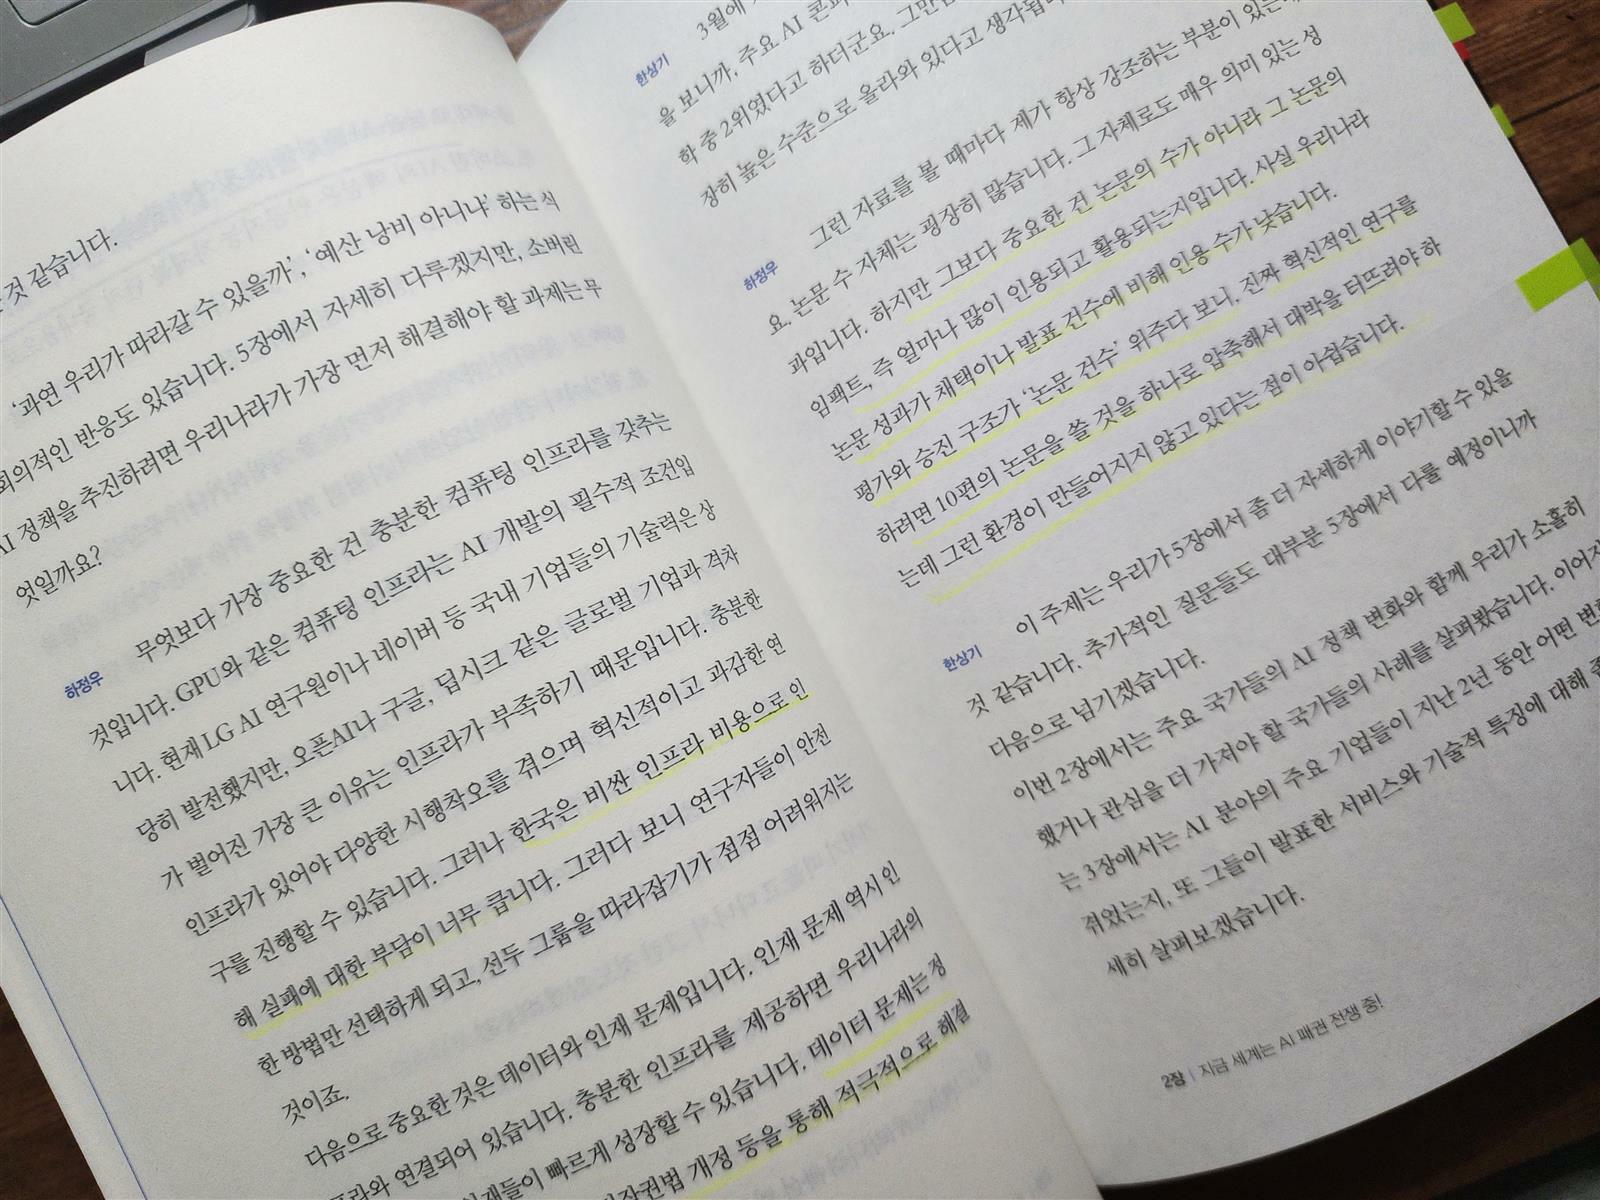 것 같습니다.
'과연 우리가 따라갈 수 있을까', '예산 낭비 아니냐' 하는 식
회의적인 반응도 있습니다. 5장에서 자세히 다루겠지만, 소버린
AI 정책을 추진하려면 우리나라가 가장 먼저 해결해야 할 과제는 무
엇일까요?
하정우 무엇보다 가장 중요한 건 충분한 컴퓨팅 인프라를 갖추는
것입니다. GPU와 같은 컴퓨팅 인프라는 AI 개발의 필수적 조건입
니다. 현재 LG AI 연구원이나 네이버 등 국내 기업들의 기술력은 상
당히 발전했지만, 오픈AI나 구글, 딥시크 같은 글로벌 기업과 격차
가 벌어진 가장 큰 이유는 인프라가 부족하기 때문입니다. 충분한
인프라가 있어야 다양한 시행착오를 겪으며 혁신적이고 과감한 연
구를 진행할 수 있습니다. 그러나 한국은 비싼 인프라 비용으로 인
해 실패에 대한 부담이 너무 큽니다. 그러다 보니 연구자들이 안전
한 방법만 선택하게 되고, 선두 그룹을 따라잡기가 점점 어려워지는
것이죠.
다음으로 중요한 것은 데이터와 인재 문제입니다. 인재 문제 역시 인
프라와 연결되어 있습니다. 충분한 인프라를 제공하면 우리나라의
인재들이 빠르게 성장할 수 있습니다. 데이터 문제는 정
저작권법 개정 등을 통해 적극적으로 해결
한상기 3월에
을 보니까, 주요 AI
학 중 2위였다고 하더군요. 그만큼
장히 높은 수준으로 올라와 있다고 생각됩니
하정우 그런 자료를 볼 때마다 제가 항상 강조하는 부분이 있는데
요. 논문 수 자체는 굉장히 많습니다. 그 자체로도 매우 의미 있는 성
과입니다. 하지만 그보다 중요한 건 논문의 수가 아니라 그 논문의
임팩트, 즉 얼마나 많이 인용되고 활용되는지입니다. 사실 우리나라
논문 성과가 채택이나 발표 건수에 비해 인용 수가 낮습니다.
평가와 승진 구조가 '논문 건수' 위주다 보니, 진짜 혁신적인 연구를
하려면 10편의 논문을 쓸 것을 하나로 압축해서 대박을 터뜨려야 하
는데 그런 환경이 만들어지지 않고 있다는 점이 아쉽습니다.
한상기 이 주제는 우리가 5장에서 좀 더 자세하게 이야기할 수 있을
것 같습니다. 추가적인 질문들도 대부분 5장에서 다룰 예정이니까
다음으로 넘기겠습니다.
이번 2장에서는 주요 국가들의 AI 정책 변화와 함께 우리가 소홀히
했거나 관심을 더 가져야 할 국가들의 사례를 살펴봤습니다. 이어지
는 3장에서는 AI 분야의 주요 기업들이 지난 2년 동안 어떤 변화
겪었는지, 또 그들이 발표한 서비스와 기술적 특징에 대해
세히 살펴보겠습니다.
2장 | 지금 세계는 AI 패권 전쟁 중!